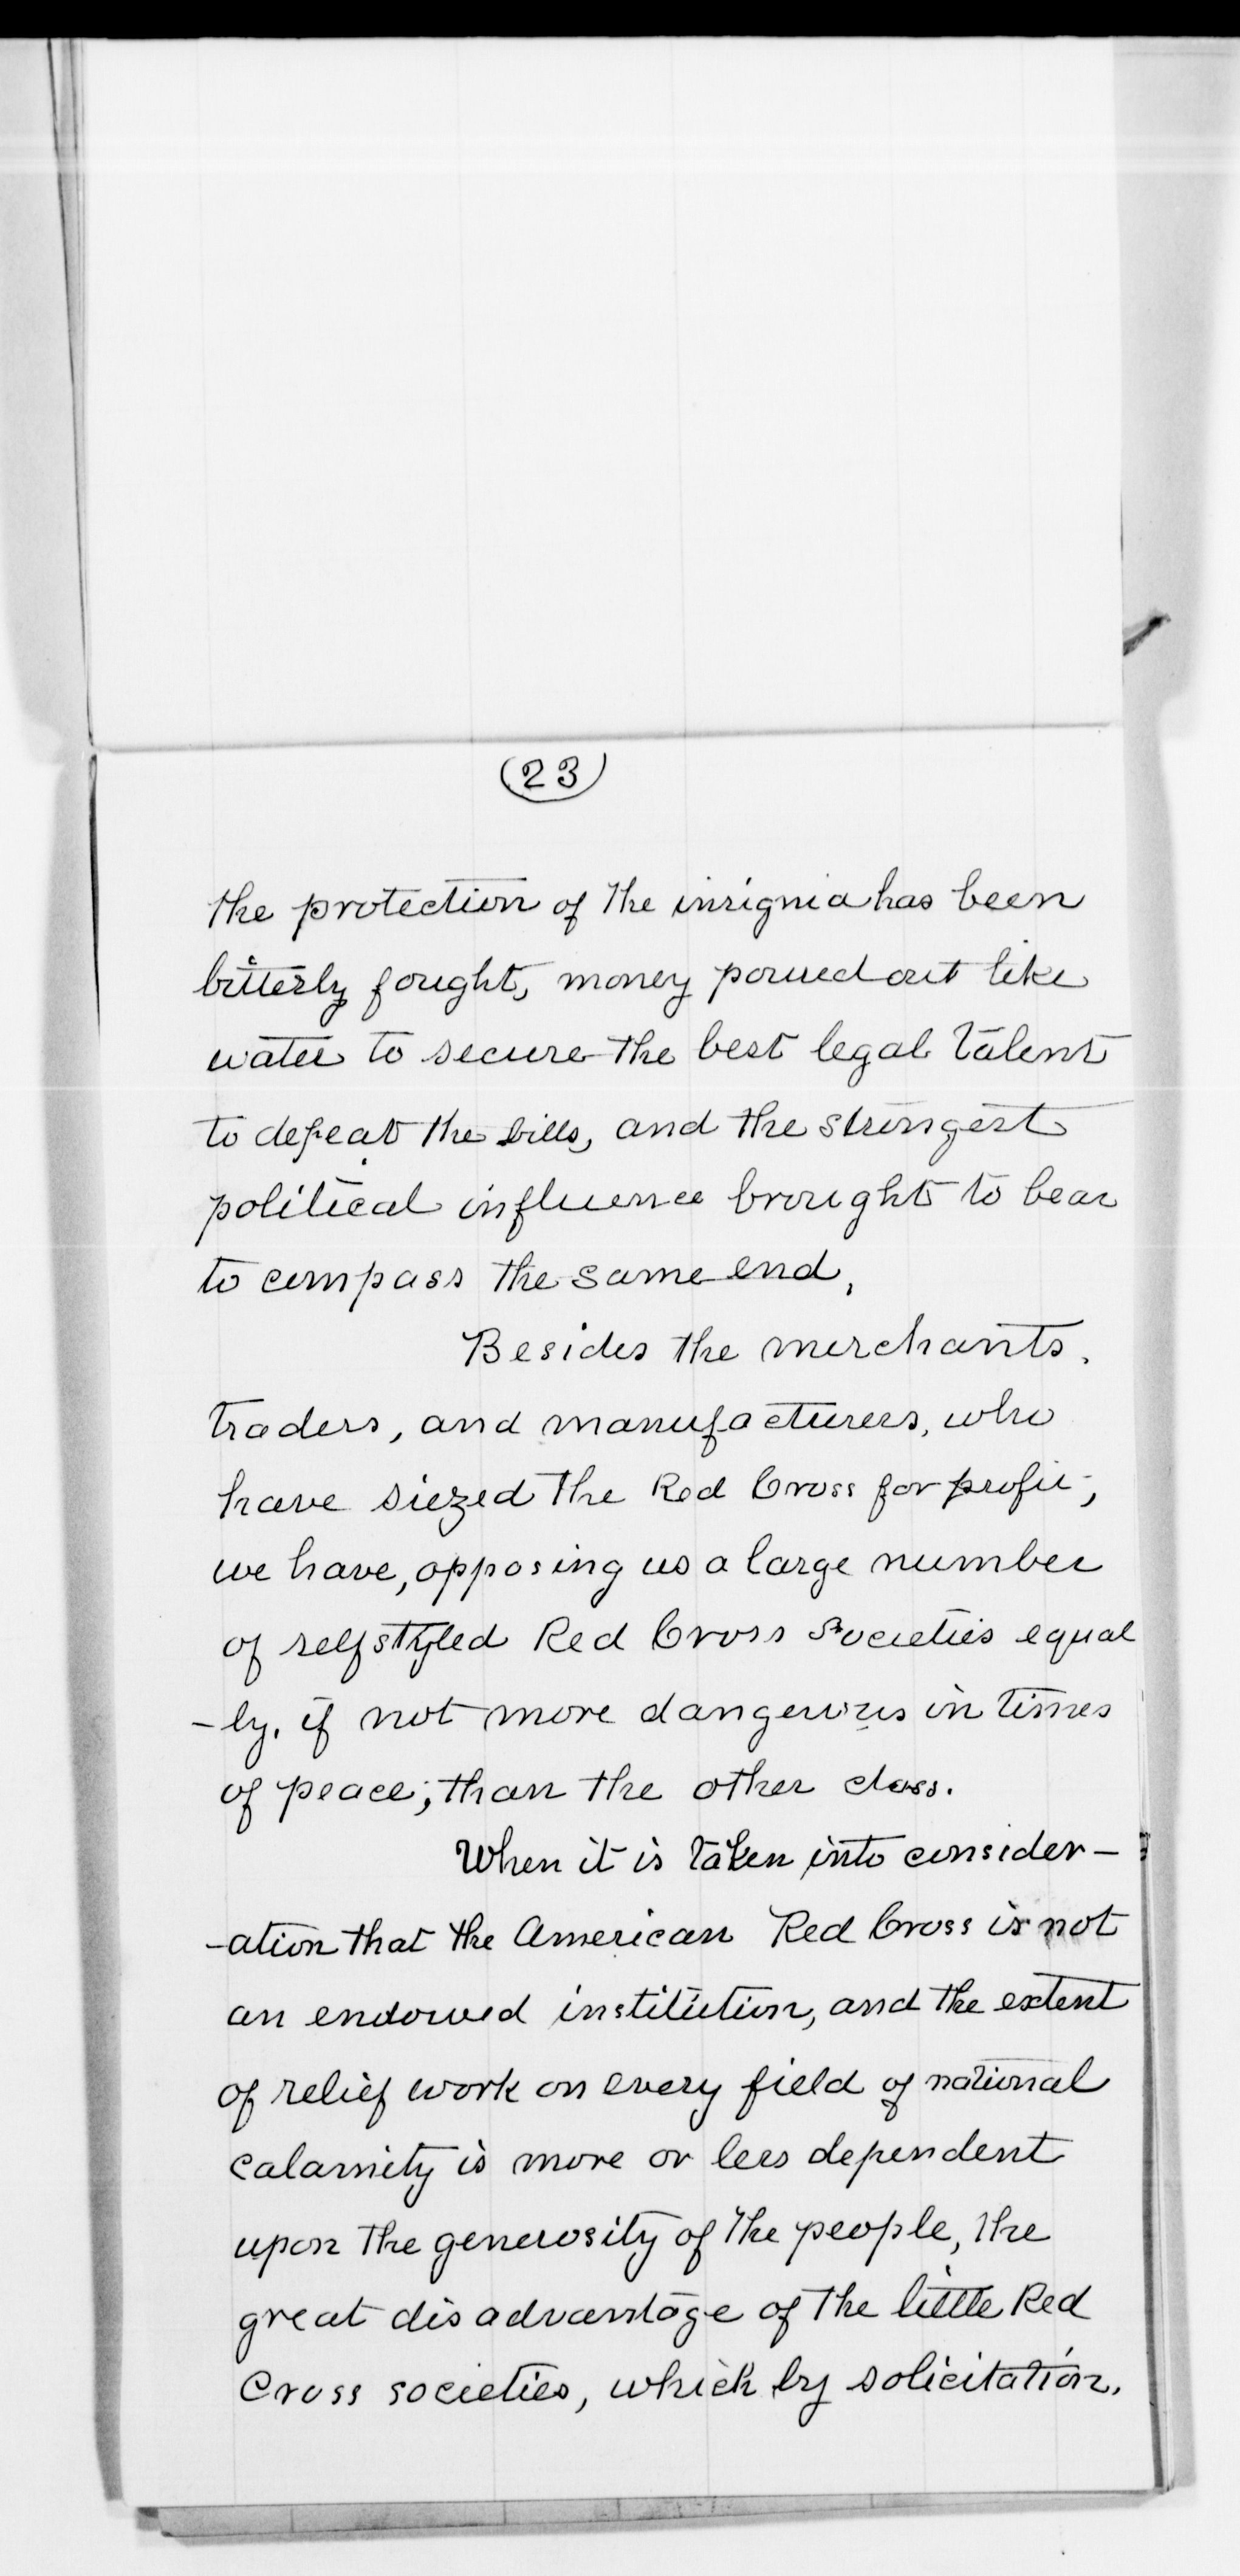 (23)
the protection of the insignia has been
bitterly fought, money poured out like
water to secure the best legal talent
to defeat the bills, and the strongest
political influence brought to bear
to compass the same end.
Besides the merchants.
traders, and manufacturers, who
have siezed the Red Cross for profit,
we have, opposing us a large number
of self styled Red Cross Societies equal
-ly, if not more dangerous in times
of peace; than the other class.
When it is taken into consider-
-ation that the American Red Cross is not
an endowed institution, and the extent
of relief work on every field of national
calamity is more or less dependent
upon the generosity of the people, the
great disadvantage of the little Red
Cross societies, which by solicitation.